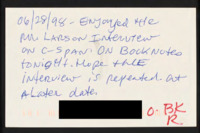 06/28/98 - Enjoyed the
Mr. Larson Interview
on C-Span: On Booknotes
tonight. Hope the
interview is repeated at
a later date.
O. BK
R.